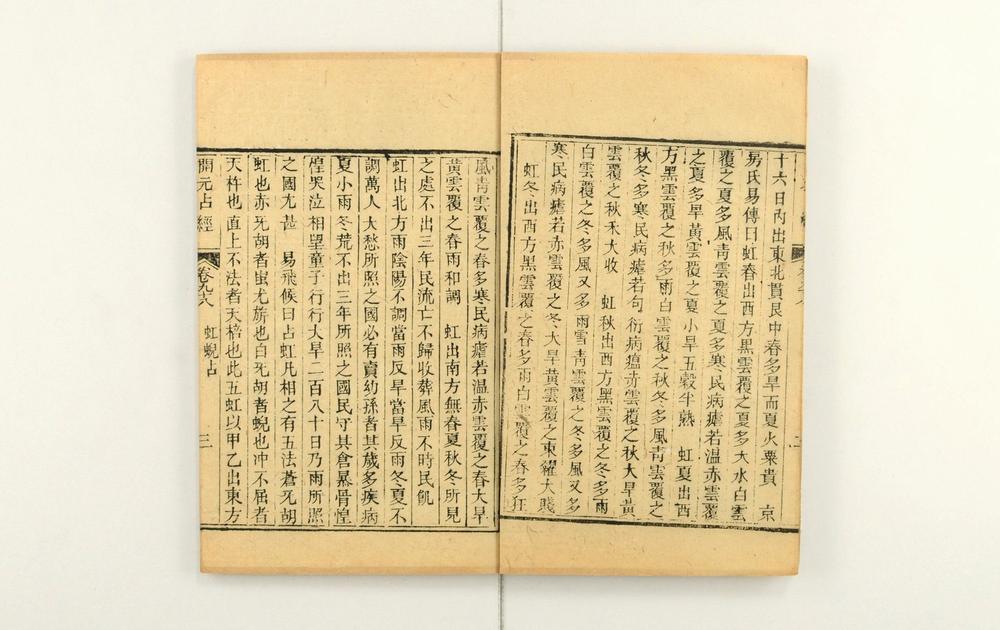 十六日內出東北貫艮中春多旱而夏火粟貴 京
房氏易傳曰虹春出西方黑雲覆之夏多大水白雲
覆之夏多風青雲覆之夏多寒民病瘧若溫赤雲覆
之夏多旱黃雲覆之夏小旱五穀半熟 虹夏出西
方黑雲覆之秋多雨白雲覆之秋冬多風青雲覆之
秋冬多寒民病瘧若句衍病瘟赤雲覆之秋大旱黃
雲覆之秋禾大收 虹秋出西方黑雲覆之冬多雨
白雲覆之冬多風又多雨雪青雲覆之冬多風又多
寒民病瘧若赤雲覆之冬大旱黃雲覆之東糴大賤
虹冬出西方黑雲覆之春多雨白雲覆之春多狂
風青雲覆之春多寒民病瘧若溫赤雲覆之春大旱
黃雲覆之春雨和調 虹出南方無春夏秋冬所見
之處不出三年民流亡不歸收葬風雨不時民飢
虹出北方雨陰陽不調當雨反旱當旱反雨冬夏不
調萬人大愁所照之國必有賣幼孫者其歲多疾病
夏小雨冬荒不出三年所照之國民守其倉暴骨惶
惶哭泣相望童子行行大旱二百八十日乃雨所照
之國尤甚 易飛候曰占虹凡相之有五法蒼旡胡
虹也赤旡胡者蚩尤旂也白旡胡者蜺也冲不屈者
天杵也直上不法者天棓也此五虹以甲乙出東方
開元占經 卷九十八 虹蜺占 三